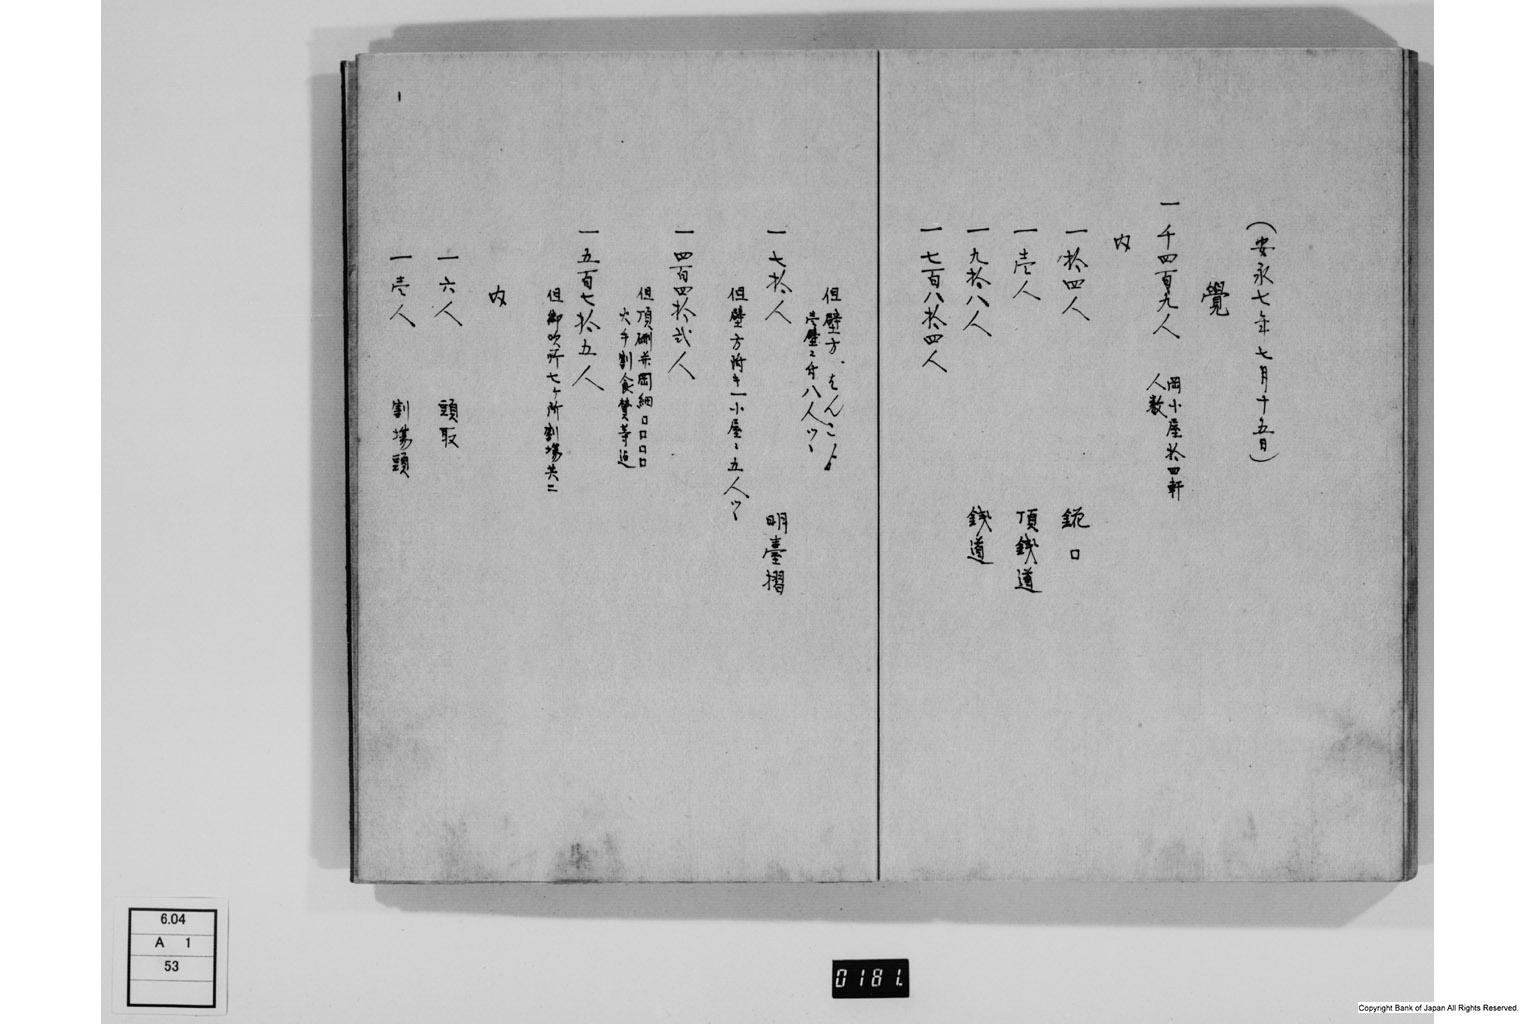 (安永七年七月十五日)
覺
一千四百九人 岡小屋拾四軒
人数
内
一拾四人 銃口
一壱人 頂銭道
一九拾八人 銭道
一七百八拾四人
但壁方、はんこよ
壱壁ニ付八人ツヽ
一七拾人 明臺摺
但壁方附キ一小屋ニ五人ツヽ
一四百四拾弐人
但頂硎并岡細口口口口
火手割食賛等迄
一五百七拾五人
但御吹所七ヶ所割場共ニ
内
一六人 頭取
一壱人 割場頭
6.04
A 1
53
0181
Copyright Bank of Japan All Rights Reserved.